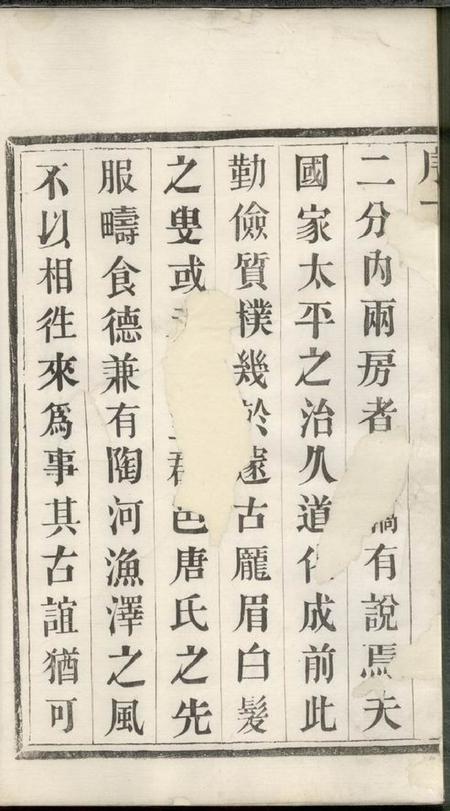 序一
二分內兩房者有說焉夫
國家太平之治久道化成前此
勤儉質樸幾於遠古龐眉白髮
之叟或群邑唐氏之先
服疇食德兼有陶河漁澤之風
不以相徃來爲事其古誼猶可